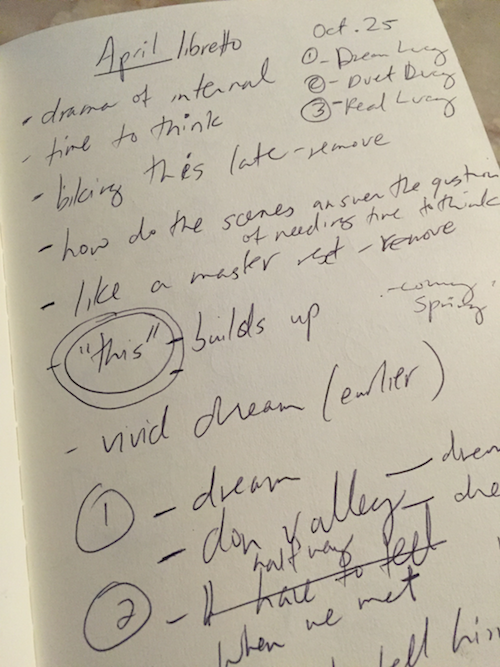 April libretto
Oct. 25
① - Dream Lucy
② - Duet Lucy
③ - Real Lucy
- drama of internal
- time to think
- biking this late - remove
- how do the scenes answer the question
of needing time to think
- like a master - remove
"this" - builds up
- coming
Spring
- vivid dream (earlier)
① - dream
- don valley
② - I hate to tell
half way
when we met